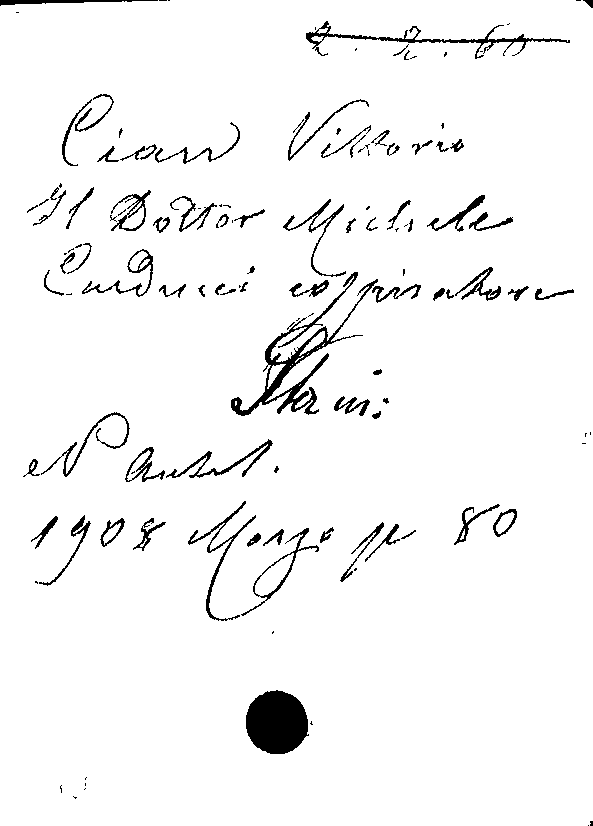 2. 2. 60
Cian Vittorio
Il Dottor Michele
Carducci cospiratore
N Antol.
1908 Marzo p 80